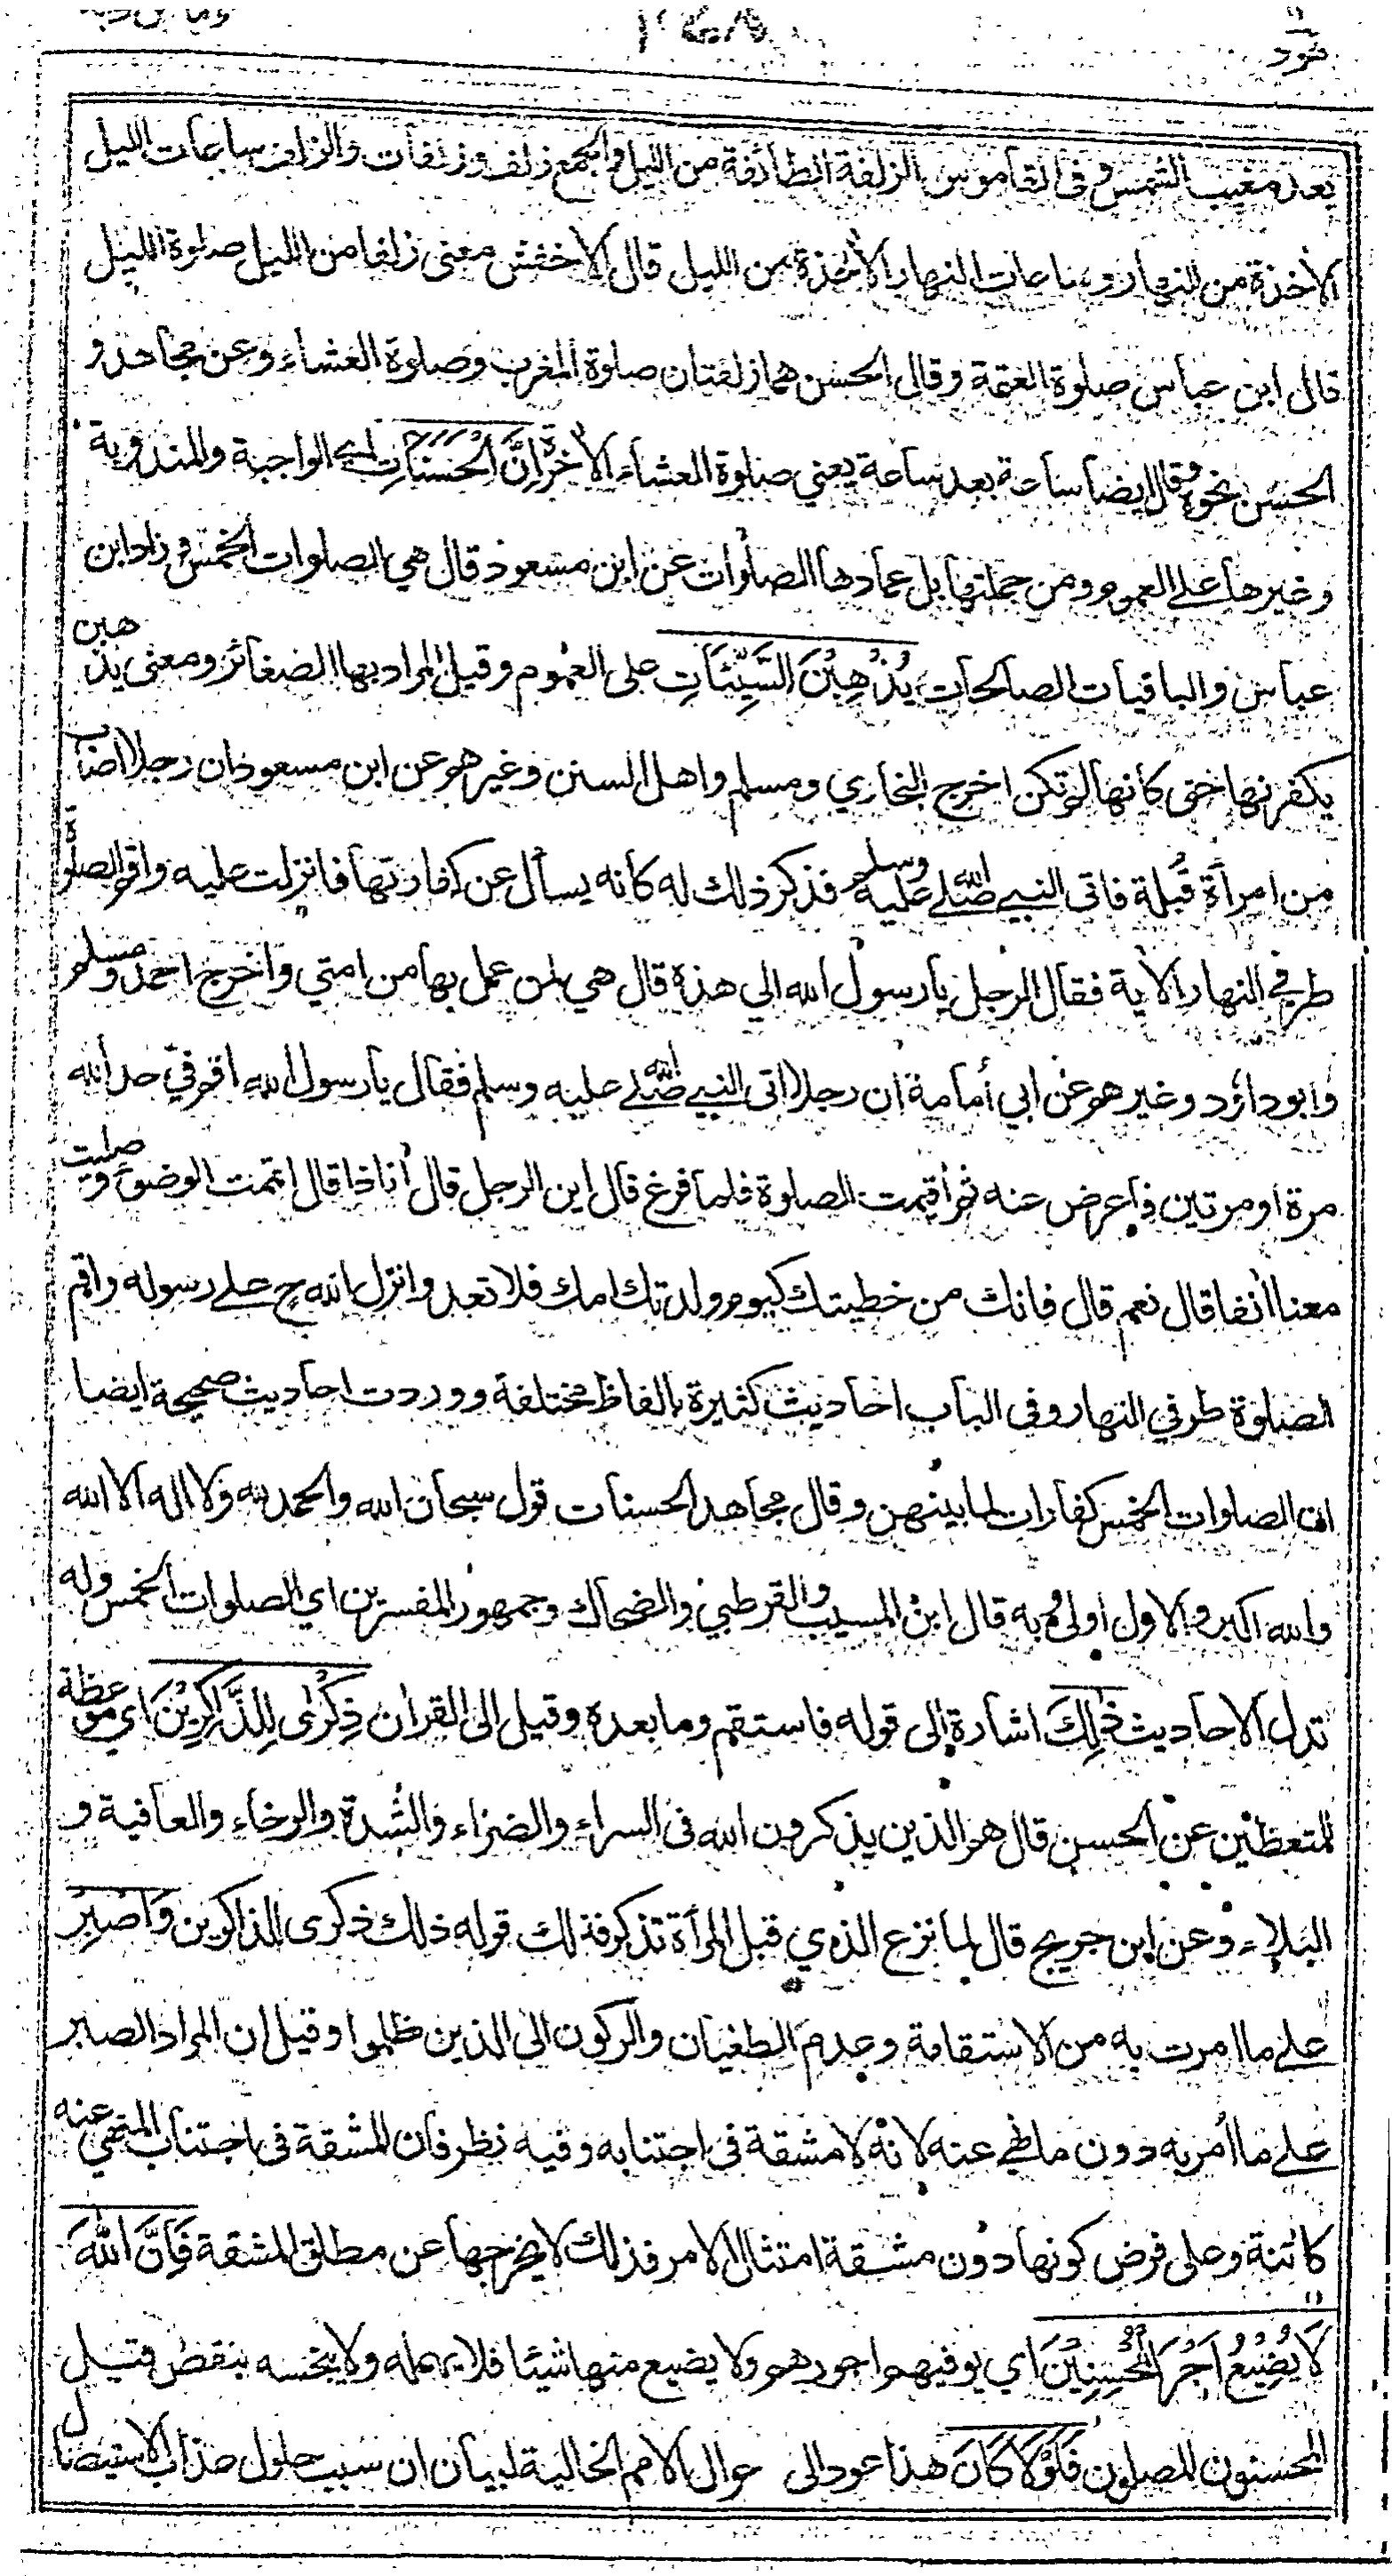 هود
بعد مغيب الشمس وفى القاموس الزلفة الطائفة من الليل والجمع زلف وزلفات والزلف ساعات الليل
الأخذة من النهار وساعات النهار الأخذة من الليل قال الاخفش معنى زلفا من الليل صلوة الليل
قال ابن عباس صلوة العتمة وقال الحسن هما زلفتان صلوة المغرب وصلوة العشاء وعن مجاهد و
الحسن نحوه وقال ايضا ساعة بعد ساعة يعني صلوة العشاء الأخرة اِنَّ الْحَسَنَاتِ اي الواجبة والمندوبة
وغيرها على العموم ومن جملتها بل عمادها الصلوات عن ابن مسعود قال هي الصلوات الخمس وزاد ابن
عباس والباقيات الصالحات يُذْهِبْنَ السَّيِّئَاتِ على العموم وقيل المراد بها الصغائر ومعنى يذهبن
يكفرنها حتى كانها لم تكن اخرج البخاري ومسلم واهل السنن وغيرهم عن ابن مسعود ان رجلا اصاب
من امرأة قُبلة فاتى النبي صلى الله عليه وسلم فذكر ذلك له كانه يسأل عن كفارتها فانزلت عليه واقم الصلوة
طرفي النهار الأية فقال الرجل يا رسول الله الي هذه قال هي لمن عمل بها من امتي واخرج احمد ومسلم
وابو داؤد وغيرهم عن ابي أمامة ان رجلا اتى النبي صلى الله عليه وسلم فقال يا رسول الله اقم في حد الله
مرة او مرتين فاعرض عنه ثم اقيمت الصلوة فلما فرغ قال اين الرجل قال أنا ذا قال اتممت الوضوء وصليت
معنا أنفا قال نعم قال فانك من خطيتك كيوم ولدتك امك فلا تعد وانزل الله ح على رسوله واقم
الصلوة طرفي النهار وفى الباب احاديث كثيرة بالفاظ مختلفة ووردت احاديث صحيحة ايضا
ان الصلوات الخمس كفارات لما بينهن وقال مجاهد الحسنات قول سبحان الله والحمد لله ولا اله الا الله
والله اكبر والاول اولى وبه قال ابن المسيب والقرطبي والضحاك وجمهور المفسرين اي الصلوات الخمس وله
تدل الاحاديث ذٰلِكَ اشارة الى قوله فاستقم وما بعده وقيل الى القرأن ذِكْرٰى لِلذَّاكِرِيْنَ اي موعظة
للمتعظين عن الحسن قال هم الذين يذكرون الله فى السراء والضراء والشدة والرخاء والعافية و
البلاء وعن ابن جريج قال لما نزع الذي قبل المرأة تذكر فذلك قوله ذلك ذكرى للذاكرين وَاصْبِرْ
على ما امرت به من الاستقامة وعدم الطغيان والركون الى الذين ظلموا وقيل ان المراد الصبر
على ما أمر به دون ما نهي عنه لانه لا مشقة فى اجتنابه وفيه نظر فان المشقة فى اجتناب المنهي عنه
كائنة وعلى فرض كونها دون مشقة امتثال الامر فذلك لا يخرجها عن مطلق المشقة فَاِنَّ اللّٰهَ
لَا يُضِيْعُ اَجْرَ الْمُحْسِنِيْنَ اي يوفيهم اجورهم ولا يضيع منها شيئا فلا يهمله ولا يبخسه بنقص قتيل
المحسنون المصلون فَلَوْلَا كَانَ هذا عود الى احوال الامم الخالية لبيان ان سبب حلول عذاب الاستيصال